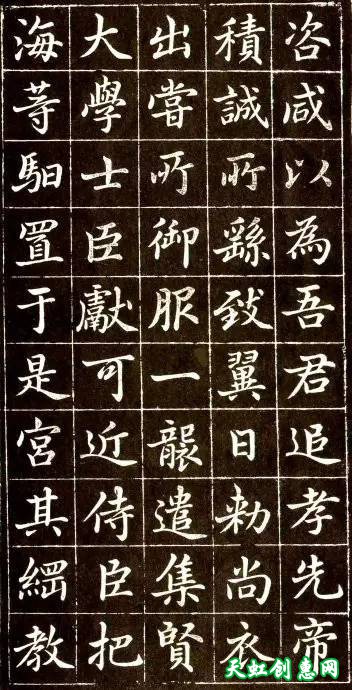 咨咸以為吾君追孝先帝
積誠所繇致翼日勑尚衣
出嘗所御服一襲遣集賢
大學士臣獻可近侍臣把
海等馹置于是宮其繝教
天虹创惠网